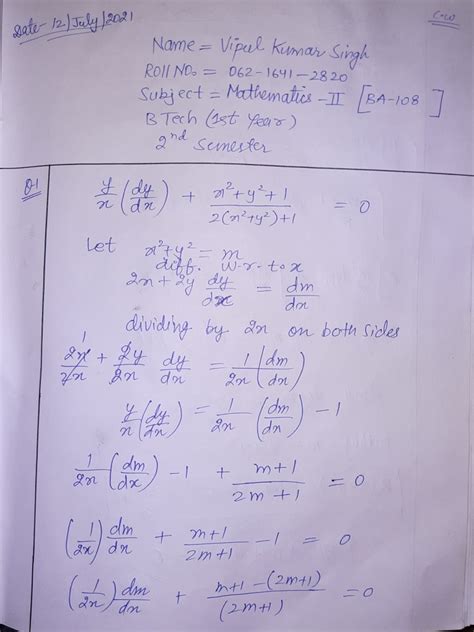 Date- 12/July/2021
C-W
Name = Vipul Kumar Singh
Roll No. = 062-1641-2820
Subject = Mathematics-II [BA-108]
B Tech (1st Year)
2nd Semester
Q1 y/x (dy/dx) + (x²+y²+1)/(2(x²+y²)+1) = 0
Let x²+y² = m
diff. w-r-to x
2x + 2y dy/dx = dm/dx
dividing by 2x on both sides
2x/2x + 2y/2x dy/dx = 1/2x (dm/dx)
y/x (dy/dx) = 1/2x (dm/dx) - 1
1/2x (dm/dx) - 1 + (m+1)/(2m+1) = 0
(1/2x) dm/dx + (m+1)/(2m+1) - 1 = 0
(1/2x) dm/dx + (m+1-(2m+1))/(2m+1) = 0